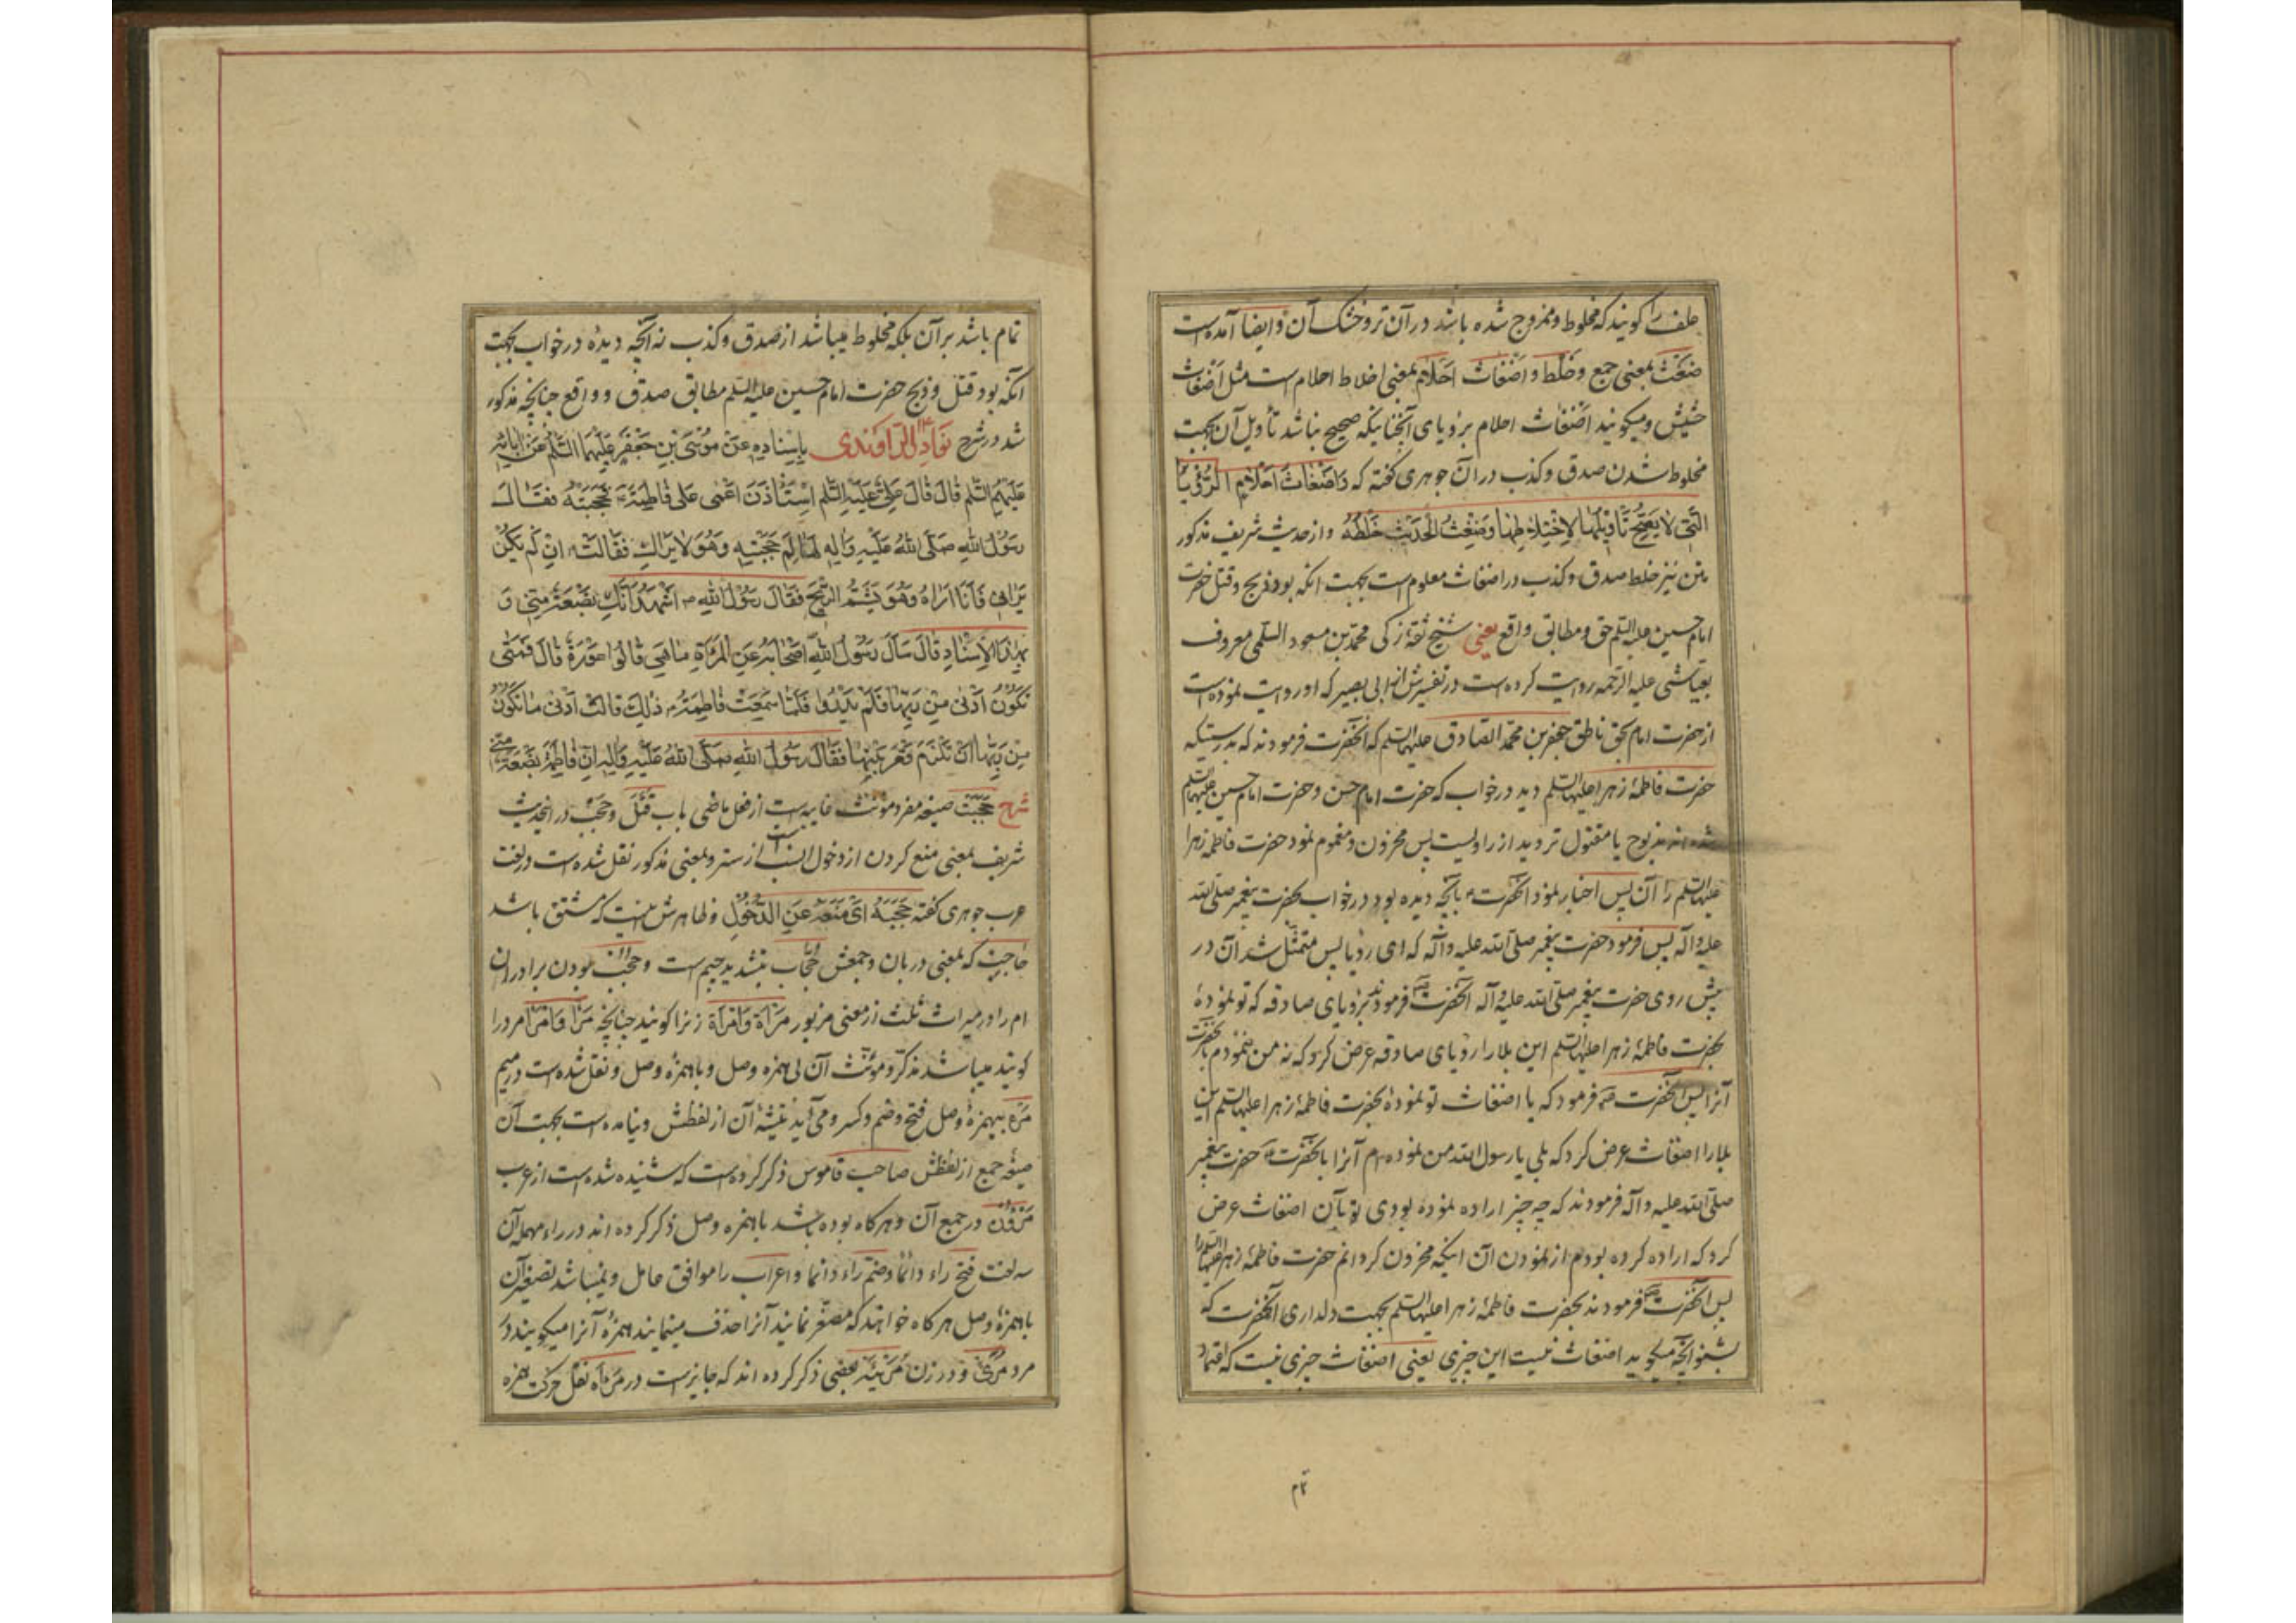 علف را کویند که مخلوط و ممزوج شده باشد در آن تر و خشک آن و ایضا آمده است
ضَغَثَ بمعنی جمع و خَلَط و اَضْغاث اَحْلام بمعنی اخلاط احلام است مثل اَضْغاث
حَشیش و میکویند اَضْغاث احلام بر رؤیای آنچنانیکه صحیح نباشد تأویل آن بجهت
مخلوط شدن صدق و کذب در آن جوهری کفته که وَاَضْغاثُ اَحْلامٍ الرُّؤْیَا
الَّتی لا یَصِحُّ تَأویلُها لِاِخْتِلاطِها وَضِغْثُ الْحَدیثِ خَلْطُهُ و از حدیث شریف مذکور
متن نیز خلط صدق و کذب در اضغاث معلوم است بجهت انکه بود ذبح و قتل حضرت
امام حسین علیه السلم حق و مطابق واقع یعنی شیخ ثقه زکی محمد بن مسعود السلمی معروف
بعیاشی علیه الرحمه روایت کرده است در تفسیرش از ابی بصیر که او روایت نموده است
از حضرت امام بحق ناطق جعفر بن محمد الصادق علیهما السلم که آنحضرت فرمودند که بدرستیکه
حضرت فاطمهٔ زهرا علیها السلم دید در خواب که حضرت امام حسن و حضرت امام حسین علیهما السلم
شده اند مذبوح یا مقتول تردید از راویست پس محزون و مغموم نمود حضرت فاطمه زهرا
علیها السلم را آن پس اخبار نمود انحضرت بآنچه دیده بود در خواب بحضرت پیغمبر صلی الله
علیه و آله پس فرمود حضرت پیغمبر صلی الله علیه و آله که ای رؤیا پس متمثّل شد آن در
پیش روی حضرت پیغمبر صلی الله علیه و آله انحضرت فرمودند برؤیای صادقه که تو نمودهٔ
بحضرت فاطمهٔ زهرا علیها السلم این بلا را رؤیای صادقه عرض کرد که نه من ننمودم بآنحضرت
آنرا پس آنحضرت فرمود که یا اضغاث تو نمودهٔ بحضرت فاطمهٔ زهرا علیها السلم این
بلا را اضغاث عرض کرد که بلی یا رسول الله من نموده ام آنرا بآنحضرت حضرت پیغمبر
صلی الله علیه و آله فرمودند که چه چیز اراده نموده بودی تو بآن اضغاث عرض
کرد که اراده کرده بودم از نمودن آن اینکه محزون کردانم حضرت فاطمهٔ زهرا علیها السلم را
پس آنحضرت فرمودند بحضرت فاطمهٔ زهرا علیها السلم بجهت دلداری انحضرت که
بشنو آنچه میکوید اضغاث نیست این چیزی یعنی اضغاث چیزی نیست که اعتماد
تمام
تمام باشد بر آن بلکه مخلوط میباشد از صدق و کذب نه آنچه دیدهٔ در خواب بجهت
انکه بود قتل و ذبح حضرت امام حسین علیه السلم مطابق صدق و واقع چنانچه مذکور
شد در شرح نَوادِرُ الرّاوَندی بِاِسْنادِهِ عَنْ مُوسَی بْنِ جَعْفَرٍ عَلَیْهِمَا السَّلم عَنْ آبائِهِ
عَلَیْهِمُ السَّلم قالَ قالَ عَلِیٌّ عَلَیْهِ السَّلم اِسْتَأْذَنَ اَعْمی عَلی فاطِمَةَ فَحَجَبَتْهُ فَقالَ
رَسُولُ اللهِ صَلَّی اللهُ عَلَیْهِ وَآلِهِ لَها لِمَ حَجَبْتِهِ وَهُوَ لا یَراكِ فَقالَتْ اِنْ لَمْ یَکُنْ
یَرانی فَاَنَا اَراهُ وَهُوَ یَشُمُّ الرّیحَ فَقالَ رَسُولُ اللهِ اَشْهَدُ اَنَّكِ بَضْعَةٌ مِنّی وَ
بِهذَا الْاِسْنادِ قالَ سَأَلَ رَسُولُ اللهِ اَصْحابَهُ عَنِ الْمَرْأَةِ ماهِیَ قالُوا عَوْرَةٌ قالَ فَمَتی
تَکُونُ اَدْنی مِنْ رَبِّها فَلَمْ یَدْرُوا فَلَمّا سَمِعَتْ فاطِمَةُ ذلِكَ قالَتْ اَدْنی ما تَکُونُ
مِنْ رَبِّها اَنْ تَلْزَمَ قَعْرَ بَیْتِها فَقالَ رَسُولُ اللهِ صَلَّی اللهُ عَلَیْهِ وَآلِهِ اِنَّ فاطِمَةَ بَضْعَةٌ مِنّی
شرح حَجَبَتْ صیغه مفرد مؤنث غایبه است از فعل ماضی باب قَتَلَ و حَجْب در انحدیث
شریف بمعنی منع کردن از دخول است از ستر و بمعنی مذکور نقل شده است در لغت
عرب جوهری کفته حَجَبَهُ اَیْ مَنَعَهُ عَنِ الدُّخُولِ و ظاهرش اینست که مشتق باشد
حاجِب که بمعنی دربان و جمعش حُجّاب بتشدید جیم است و حَجْب نمودن برادران
ام را در میراث ثلث از معنی مزبور مَرْأَة وَامْرَأَة زنرا کویند چنانچه مَرْأ وَامْرَأ مرد را
کویند میباشد مذکر و مؤنث آن بی همزه وصل و با همزهٔ وصل و نقل شده است در میم
مَرْء بیهمزهٔ وصل فتح و ضم و کسر و می آید تثنیهٔ آن از لفظش و نیامده است بجهت آن
صیغه جمع از لفظش صاحب قاموس ذکر کرده است که شنیده شده است از عرب
مَرْؤُنَ در جمع آن و هرکاه بوده باشد با همزه وصل ذکر کرده اند در راء مهمله آن
سه لغت فتح راء دائما و ضمّ راء دائما و اعراب را موافق عامل و نمیباشد تصغیر آن
با همزهٔ وصل هرکاه خواهند که مصغّر نمایند آنرا حذف مینمایند همزهٔ آنرا میکویند در
مرد مُرَیْئ و در زن مُرَیْئَة بعضی ذکر کرده اند که جایز است در مَرْأة نقل حرکت همزه